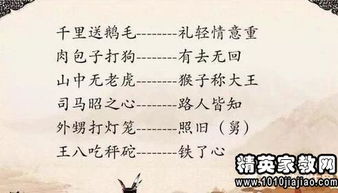 千里送鹅毛--------礼轻情意重
肉包子打狗--------有去无回
山中无老虎--------猴子称大王
司马昭之心--------路人皆知
外甥打灯笼--------照旧（舅）
王八吃秤砣--------铁了心
精英家教网
www.1010jiajiao.com